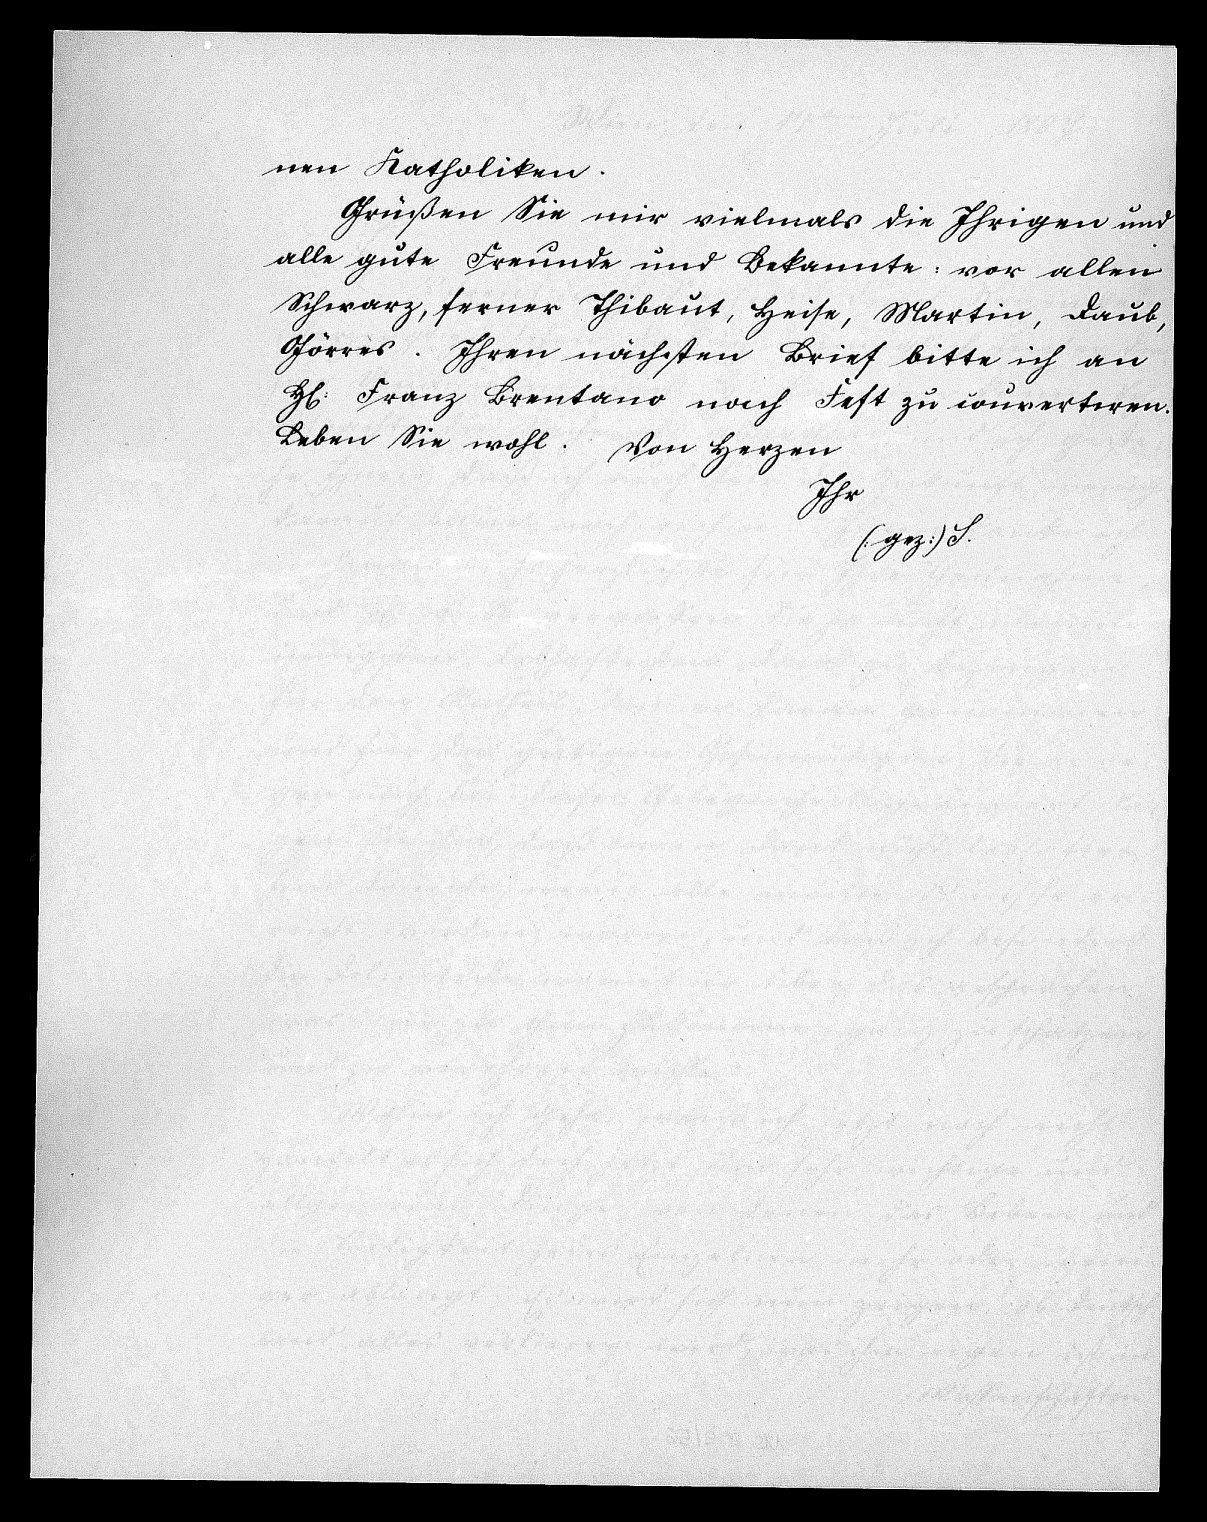 nen Katholiken.
Grüßen Sie mir vielmals die Ihrigen und
alle gute Freunde und Bekannte: vor allen
Schwarz, ferner Thibaut, Heise, Martin, Daub,
Görres. Ihren nächsten Brief bitte ich an
H: Franz Brentano nach Fest zu couvertiren.
Leben Sie wohl. Von Herzen
Ihr
(: gez:) S.